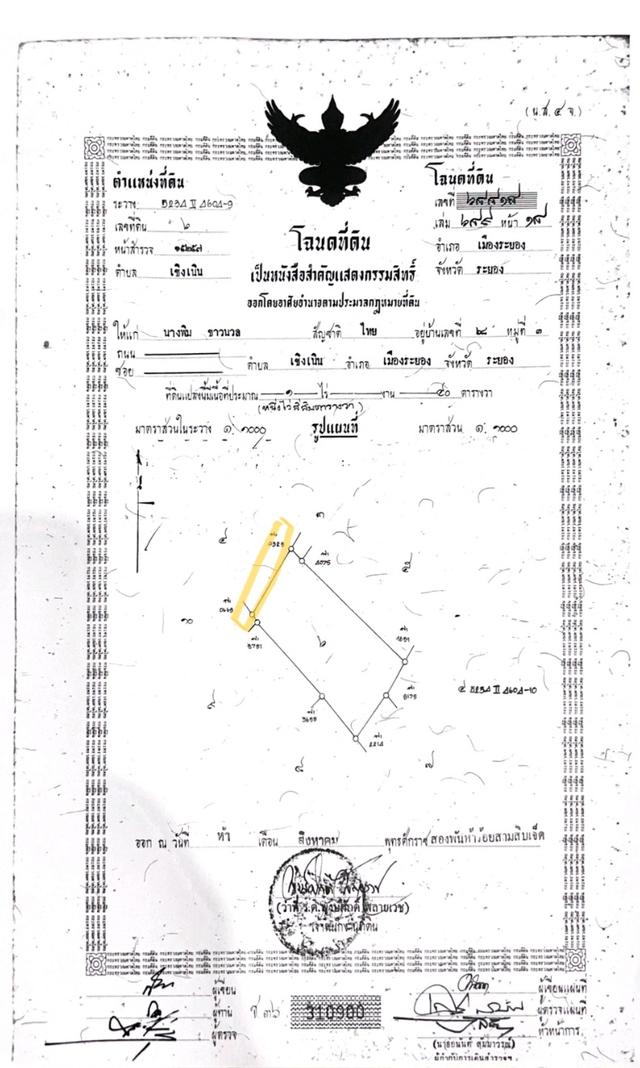 (น.ส.๔ จ.)
ตำแหน่งที่ดิน
โฉนดที่ดิน
ระวาง 5234 II 4604-9
เลขที่ ๖๙๙๑๙
เลขที่ดิน ๖
เล่ม ๖๙๙ หน้า ๑๙
หน้าสำรวจ
โฉนดที่ดิน
อำเภอ เมืองระยอง
ตำบล เชิงเนิน
เป็นหนังสือสำคัญแสดงกรรมสิทธิ์
จังหวัด ระยอง
ออกโดยอาศัยอำนาจตามประมวลกฎหมายที่ดิน
ให้แก่ นางพิม ขาวนวล สัญชาติ ไทย อยู่บ้านเลขที่ หมู่ที่ ๓
ถนน
ซอย ตำบล เชิงเนิน อำเภอ เมืองระยอง จังหวัด ระยอง
ที่ดินแปลงนี้มีเนื้อที่ประมาณ ๑ ไร่ งาน ๔๐ ตารางวา
(หนึ่งไร่สี่สิบตารางวา)
มาตราส่วนในระวาง ๑:๑๐๐๐ รูปแผนที่ มาตราส่วน ๑:๑๐๐๐
๓
๔
๕
๑๐
๖
๔ 5234 II 4604-10
๙
๘
๗
ออก ณ วันที่ ห้า เดือน สิงหาคม พุทธศักราช สองพันห้าร้อยสามสิบเจ็ด
เจ้าพนักงานที่ดิน
ผู้เขียน
ผู้เขียนแผนที่
ผู้ทาน
ปี ๓๖
310900
ผู้ตรวจแผนที่
ผู้ตรวจ
หัวหน้าการ